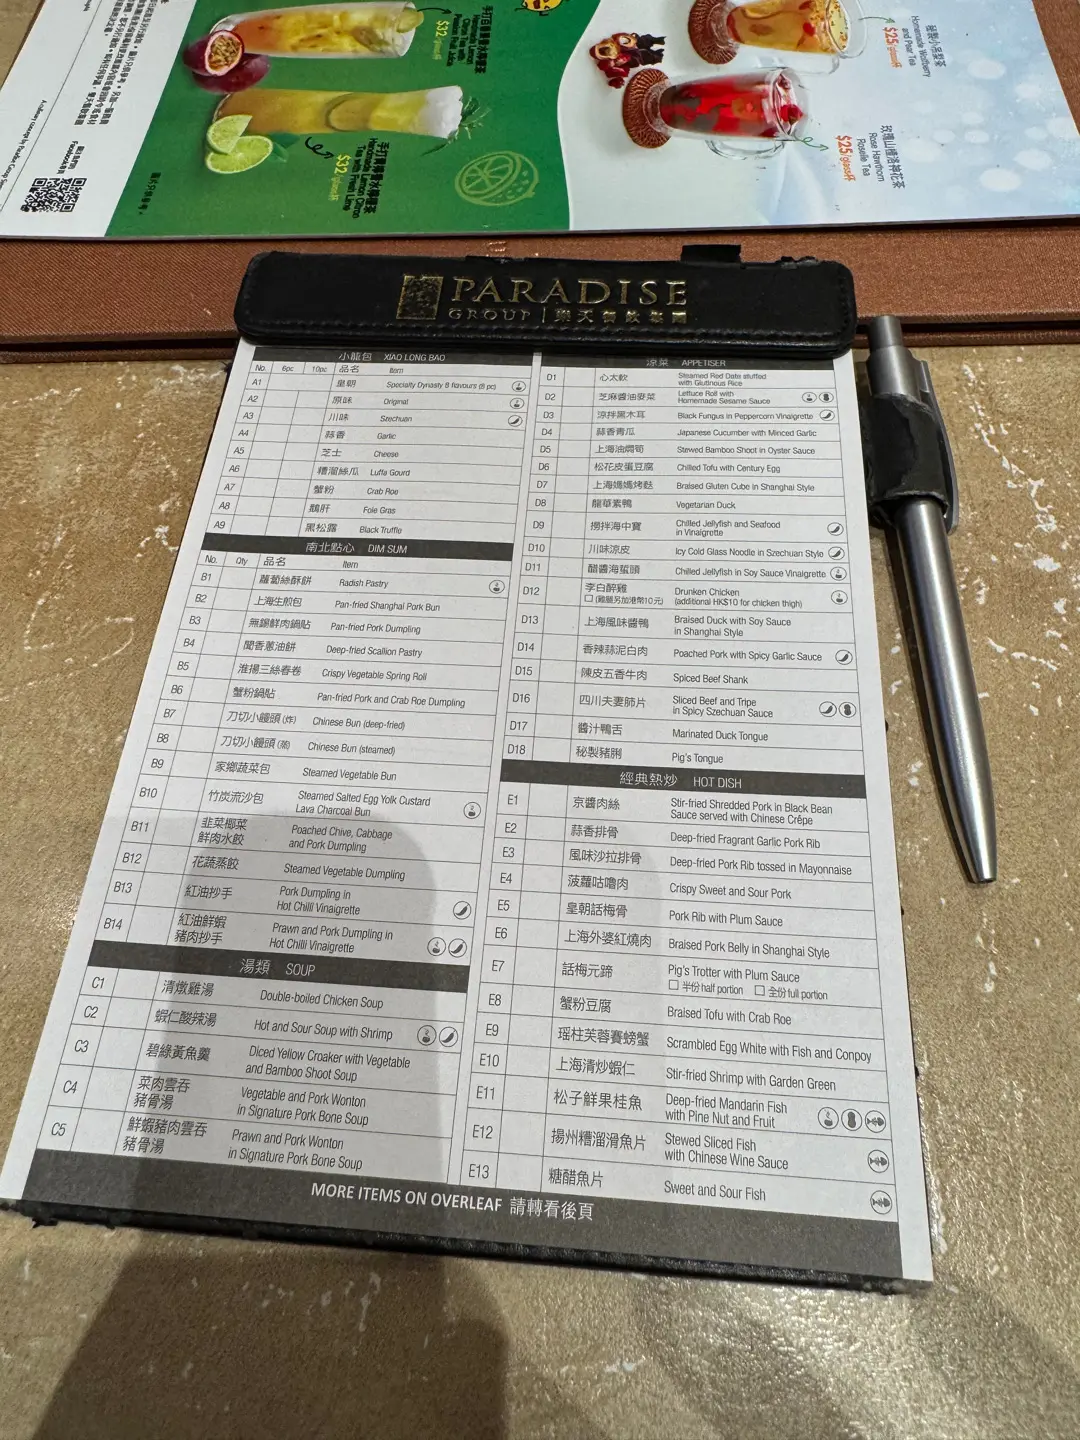 手打百香果冰檸茶
Homemade Lemon
Citron Tea with
Passion Fruit Juice
$32/glass杯
手打青檸冰檸檬茶
Handmade Lemon Citrus
Tea with Fresh Lime
$32/glass杯
秘製小吊梨茶
Homemade Wolfberry
and Pear Tea
$25/glass杯
玫瑰山楂洛神花茶
Rose Hawthorn
Roselle Tea
$25/glass杯
圖片只供參考。
PARADISE
GROUP | 樂天餐飲集團
小籠包 XIAO LONG BAO
No. 6pc 10pc 品名 Item
A1 皇朝 Specialty Dynasty 8 flavours (8 pc)
A2 原味 Original
A3 川味 Szechuan
A4 蒜香 Garlic
A5 芝士 Cheese
A6 糟溜絲瓜 Luffa Gourd
A7 蟹粉 Crab Roe
A8 鵝肝 Foie Gras
A9 黑松露 Black Truffle
南北點心 DIM SUM
No. Qty 品名 Item
B1 蘿蔔絲酥餅 Radish Pastry
B2 上海生煎包 Pan-fried Shanghai Pork Bun
B3 無錫鮮肉鍋貼 Pan-fried Pork Dumpling
B4 聞香蔥油餅 Deep-fried Scallion Pastry
B5 淮揚三絲春卷 Crispy Vegetable Spring Roll
B6 蟹粉鍋貼 Pan-fried Pork and Crab Roe Dumpling
B7 刀切小饅頭 (炸) Chinese Bun (deep-fried)
B8 刀切小饅頭 (蒸) Chinese Bun (steamed)
B9 家鄉蔬菜包 Steamed Vegetable Bun
B10 竹炭流沙包 Steamed Salted Egg Yolk Custard
Lava Charcoal Bun
B11 韭菜椰菜 Poached Chive, Cabbage
鮮肉水餃 and Pork Dumpling
B12 花蔬蒸餃 Steamed Vegetable Dumpling
B13 紅油抄手 Pork Dumpling in
Hot Chilli Vinaigrette
B14 紅油鮮蝦 Prawn and Pork Dumpling in
豬肉抄手 Hot Chilli Vinaigrette
湯類 SOUP
C1 清燉雞湯 Double-boiled Chicken Soup
C2 蝦仁酸辣湯 Hot and Sour Soup with Shrimp
C3 碧綠黃魚羹 Diced Yellow Croaker with Vegetable
and Bamboo Shoot Soup
C4 菜肉雲吞 Vegetable and Pork Wonton
豬骨湯 in Signature Pork Bone Soup
C5 鮮蝦豬肉雲吞 Prawn and Pork Wonton
豬骨湯 in Signature Pork Bone Soup
涼菜 APPETISER
D1 心太軟 Steamed Red Date stuffed
with Glutinous Rice
D2 芝麻醬油麥菜 Lettuce Roll with
Homemade Sesame Sauce
D3 涼拌黑木耳 Black Fungus in Peppercorn Vinaigrette
D4 蒜香青瓜 Japanese Cucumber with Minced Garlic
D5 上海油燜筍 Stewed Bamboo Shoot in Oyster Sauce
D6 松花皮蛋豆腐 Chilled Tofu with Century Egg
D7 上海媽媽烤麩 Braised Gluten Cube in Shanghai Style
D8 龍華素鴨 Vegetarian Duck
D9 撈拌海中寶 Chilled Jellyfish and Seafood
in Vinaigrette
D10 川味涼皮 Icy Cold Glass Noodle in Szechuan Style
D11 醋醬海蜇頭 Chilled Jellyfish in Soy Sauce Vinaigrette
D12 李白醉雞 Drunken Chicken
☐ (雞腿另加港幣10元) (additional HK$10 for chicken thigh)
D13 上海風味醬鴨 Braised Duck with Soy Sauce
in Shanghai Style
D14 香辣蒜泥白肉 Poached Pork with Spicy Garlic Sauce
D15 陳皮五香牛肉 Spiced Beef Shank
D16 四川夫妻肺片 Sliced Beef and Tripe
in Spicy Szechuan Sauce
D17 醬汁鴨舌 Marinated Duck Tongue
D18 秘製豬脷 Pig's Tongue
經典熱炒 HOT DISH
E1 京醬肉絲 Stir-fried Shredded Pork in Black Bean
Sauce served with Chinese Crêpe
E2 蒜香排骨 Deep-fried Fragrant Garlic Pork Rib
E3 風味沙拉排骨 Deep-fried Pork Rib tossed in Mayonnaise
E4 菠蘿咕嚕肉 Crispy Sweet and Sour Pork
E5 皇朝話梅骨 Pork Rib with Plum Sauce
E6 上海外婆紅燒肉 Braised Pork Belly in Shanghai Style
E7 話梅元蹄 Pig's Trotter with Plum Sauce
☐ 半份half portion ☐ 全份full portion
E8 蟹粉豆腐 Braised Tofu with Crab Roe
E9 瑶柱芙蓉賽螃蟹 Scrambled Egg White with Fish and Conpoy
E10 上海清炒蝦仁 Stir-fried Shrimp with Garden Green
E11 松子鮮果桂魚 Deep-fried Mandarin Fish
with Pine Nut and Fruit
E12 揚州糟溜滑魚片 Stewed Sliced Fish
with Chinese Wine Sauce
E13 糖醋魚片 Sweet and Sour Fish
MORE ITEMS ON OVERLEAF 請轉看後頁